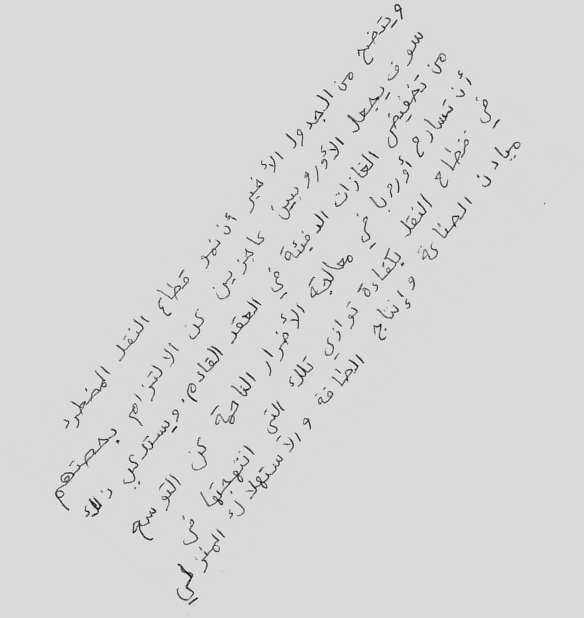 ويتضح من الجدول الأخير أن نمو قطاع النقل المضطرد
سوف يجعل الأوروبيين عاجزين عن الالتزام بحصتهم
من تخفيض الغازات الدفيئة في العقد القادم. ويستدعي ذلك
أن تسارع أوروبا في معالجة الأضرار الناجمة عن التوسع
في قطاع النقل بكفاءة توازي تلك التي انتهجتها في
ميادين الصناعة وإنتاج الطاقة والاستهلاك المنزلي